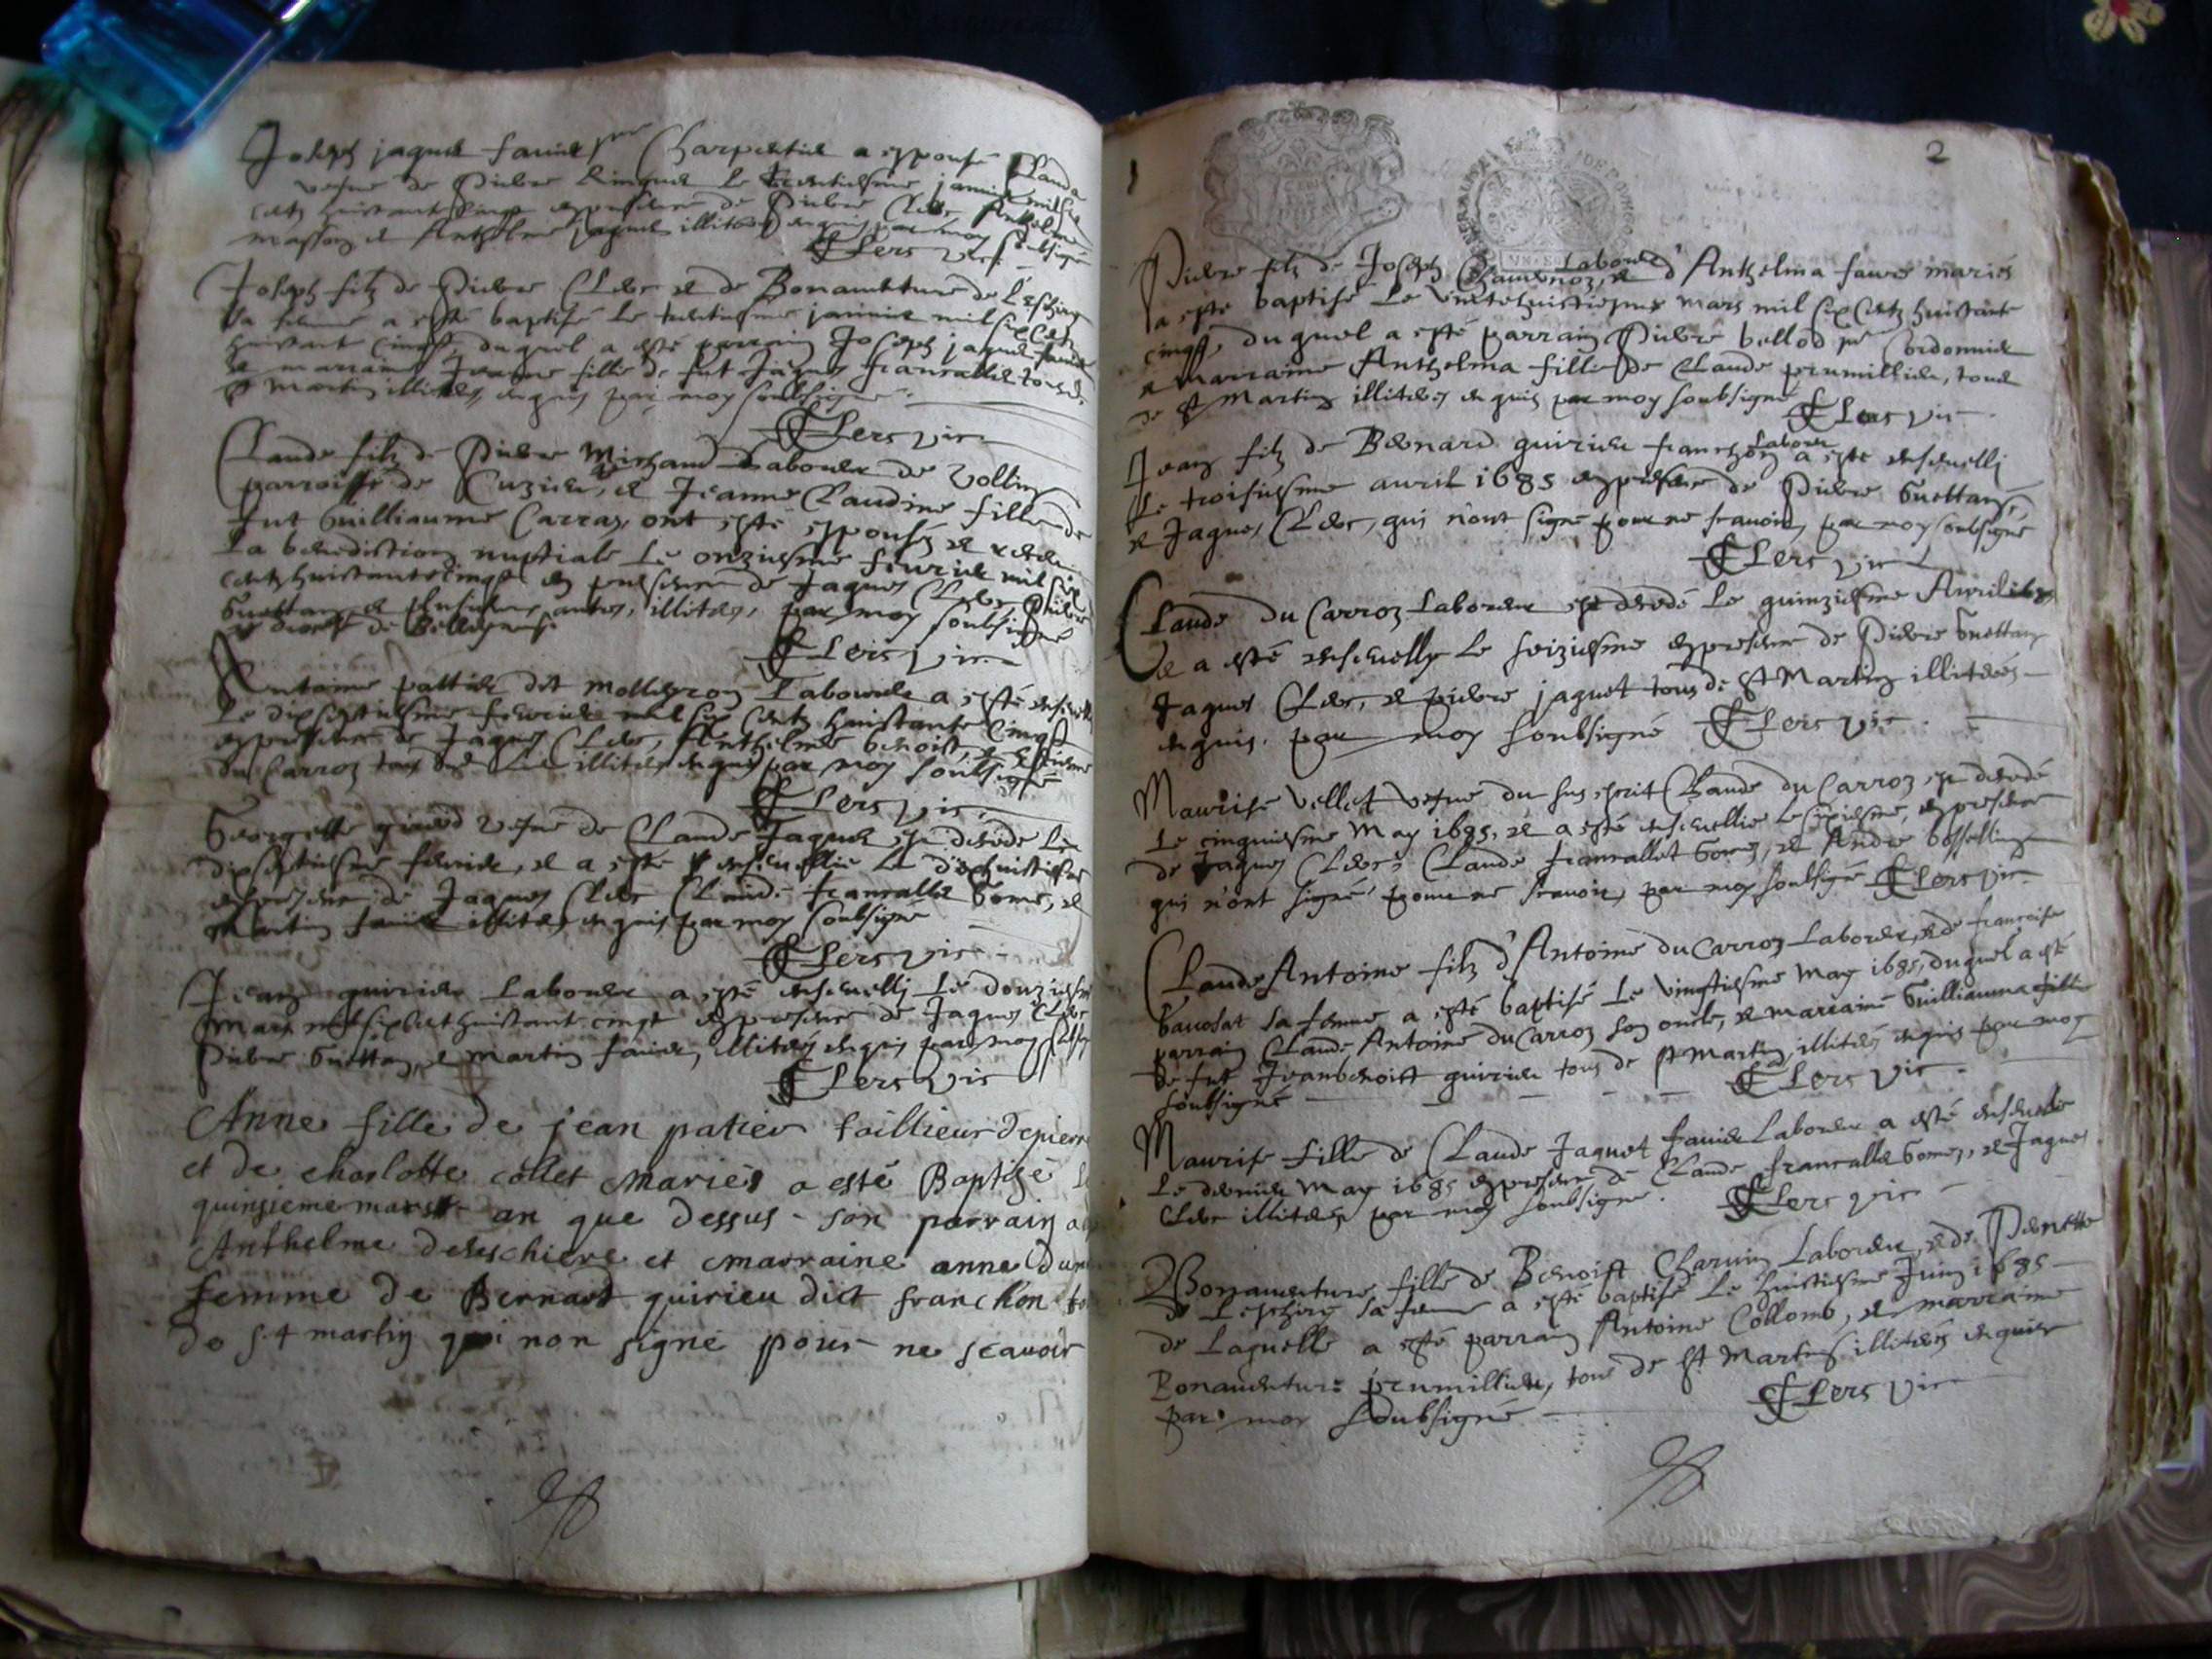 Joseph jaquet favier Charpentier a espousé Clauda
vefve de Pierre le trentiesme janvier mil six
cents huictante cinq en presence de Pierre Clerc Anthelme
masson et Anthelme jaquet illiterés enquis par moy soubsigné
Clerc vic.
Joseph filz de Pierre Clerc et de Bonaventure de Leschiere
sa femme a esté baptisé le trentiesme janvier mil six cents
huictante cinq, duquel a esté parrain Joseph jaquet favier
et marraine Jeanne fille de fut Jaques francallet tous de
St Martin illiterés, enquis par moy soubsigné
Clerc vic.
Claude filz de Pierre Michaud Laboureur de Vollien
parroisse de Cuzieu, et Jeanne Claudine fille de
fut Guilliaume Carraz, ont esté espousés et receu
la benediction nuptiale le onziesme fevrier mil six
cents huictante cinq en presence de Jaques Clerc Pierre
Guettan et plusieurs autres, illiterés, par moy soubsigné
diocese de Belley
Clerc vic.
Antoine pattier dit Laboureur a esté ensevelli
Le dixseptiesme fevrier mil six cents huictante cinq
en presence de Jaques Clerc, Anthelme benoist, et
du Carroz tous illiterés enquis par moy soubsigné
Clerc vic.
Georgette girerd vefve de Claude Jaquet est decedé le
dixseptiesme fevrier, et a esté ensevellie le dixhuictiesme
en presence de Jaques Clerc Claude francallet Gomez, et
Martin favier illiterés enquis par moy soubsigné
Clerc vic.
Jean quirieu Laboureur a esté ensevelli le douziesme
Mars mil six cent huictant cinq en presence de Jaques Clerc
Pierre Guettan, et Martin favier, illiterés enquis par moy
Clerc vic
Anne fille de jean patier taillieur de pierre
et de charlotte collet mariés a esté Baptizé le
quinzieme mars an que dessus son parrain a
Anthelme deleschiere et marraine anne
femme de Bernard quirieu dict franchon
de s.t martin qui non signé pour ne scavoir
2
Pierre filz de Joseph Laboureur et d'Anthelma favre mariés
a esté baptisé le vintehuictiesme mars mil six cents huictante
cinq, duquel a esté parrain Pierre bellod Cordonnier
et Marraine Anthelma fille de Claude prumillieu, tous
de St Martin illiterés enquis par moy soubsigné
Clerc vic
Jean filz de Bernard quirieu franchon Laboureur a esté ensevelli
Le troisiesme avril 1685 en presence de Pierre Guettan,
et Jaques Clerc, qui n'ont signé pour ne scavoir, par moy soubsigné
Clerc vic
Claude du Carroz Laboureur est decedé le quinziesme Avril 1685
et a esté ensevelly le seiziesme en presence de Pierre Guettan
Jaques Clerc, et pierre jaquet tous de St Martin illiterés
enquis par moy soubsigné Clerc vic.
Maurise Vellet vefve du sus escrit Claude du Carroz est decedé
le cinquiesme May 1685, et a esté ensevellie le sixiesme, en presence
de Jaques Clerc, Claude francallet Gomez, et André bossellin
qui n'ont signé pour ne scavoir, par moy soubsigné Clerc vic
Claude Antoine filz d'Antoine du Carroz Laboureur, et de francoise
Gavosat sa femme a esté baptisé le vingtiesme May 1685, duquel a esté
parrain Claude Antoine du Carroz son oncle, et marraine Guilliauma fille
de fut Jean benoist quirieu tous de St Martin illiterés enquis par moy
soubsigné
Clerc vic.
Maurise fille de Claude Jaquet favier Laboureur a esté ensevelie
le dernier May 1685 en presence de Claude francallet Gomez, et Jaques
Clerc illiterés par moy soubsigné. Clerc vic
Bonaventure fille de Benoist Charvin Laboureur, et de Pernette
de Leschiere sa femme a esté baptisé le huictiesme Juin 1685
de Laquelle a esté parrain Antoine Collomb, et marraine
Bonaventure prumillieu, tous de St Martin illiterés enquis
par moy soubsigné
Clerc vic